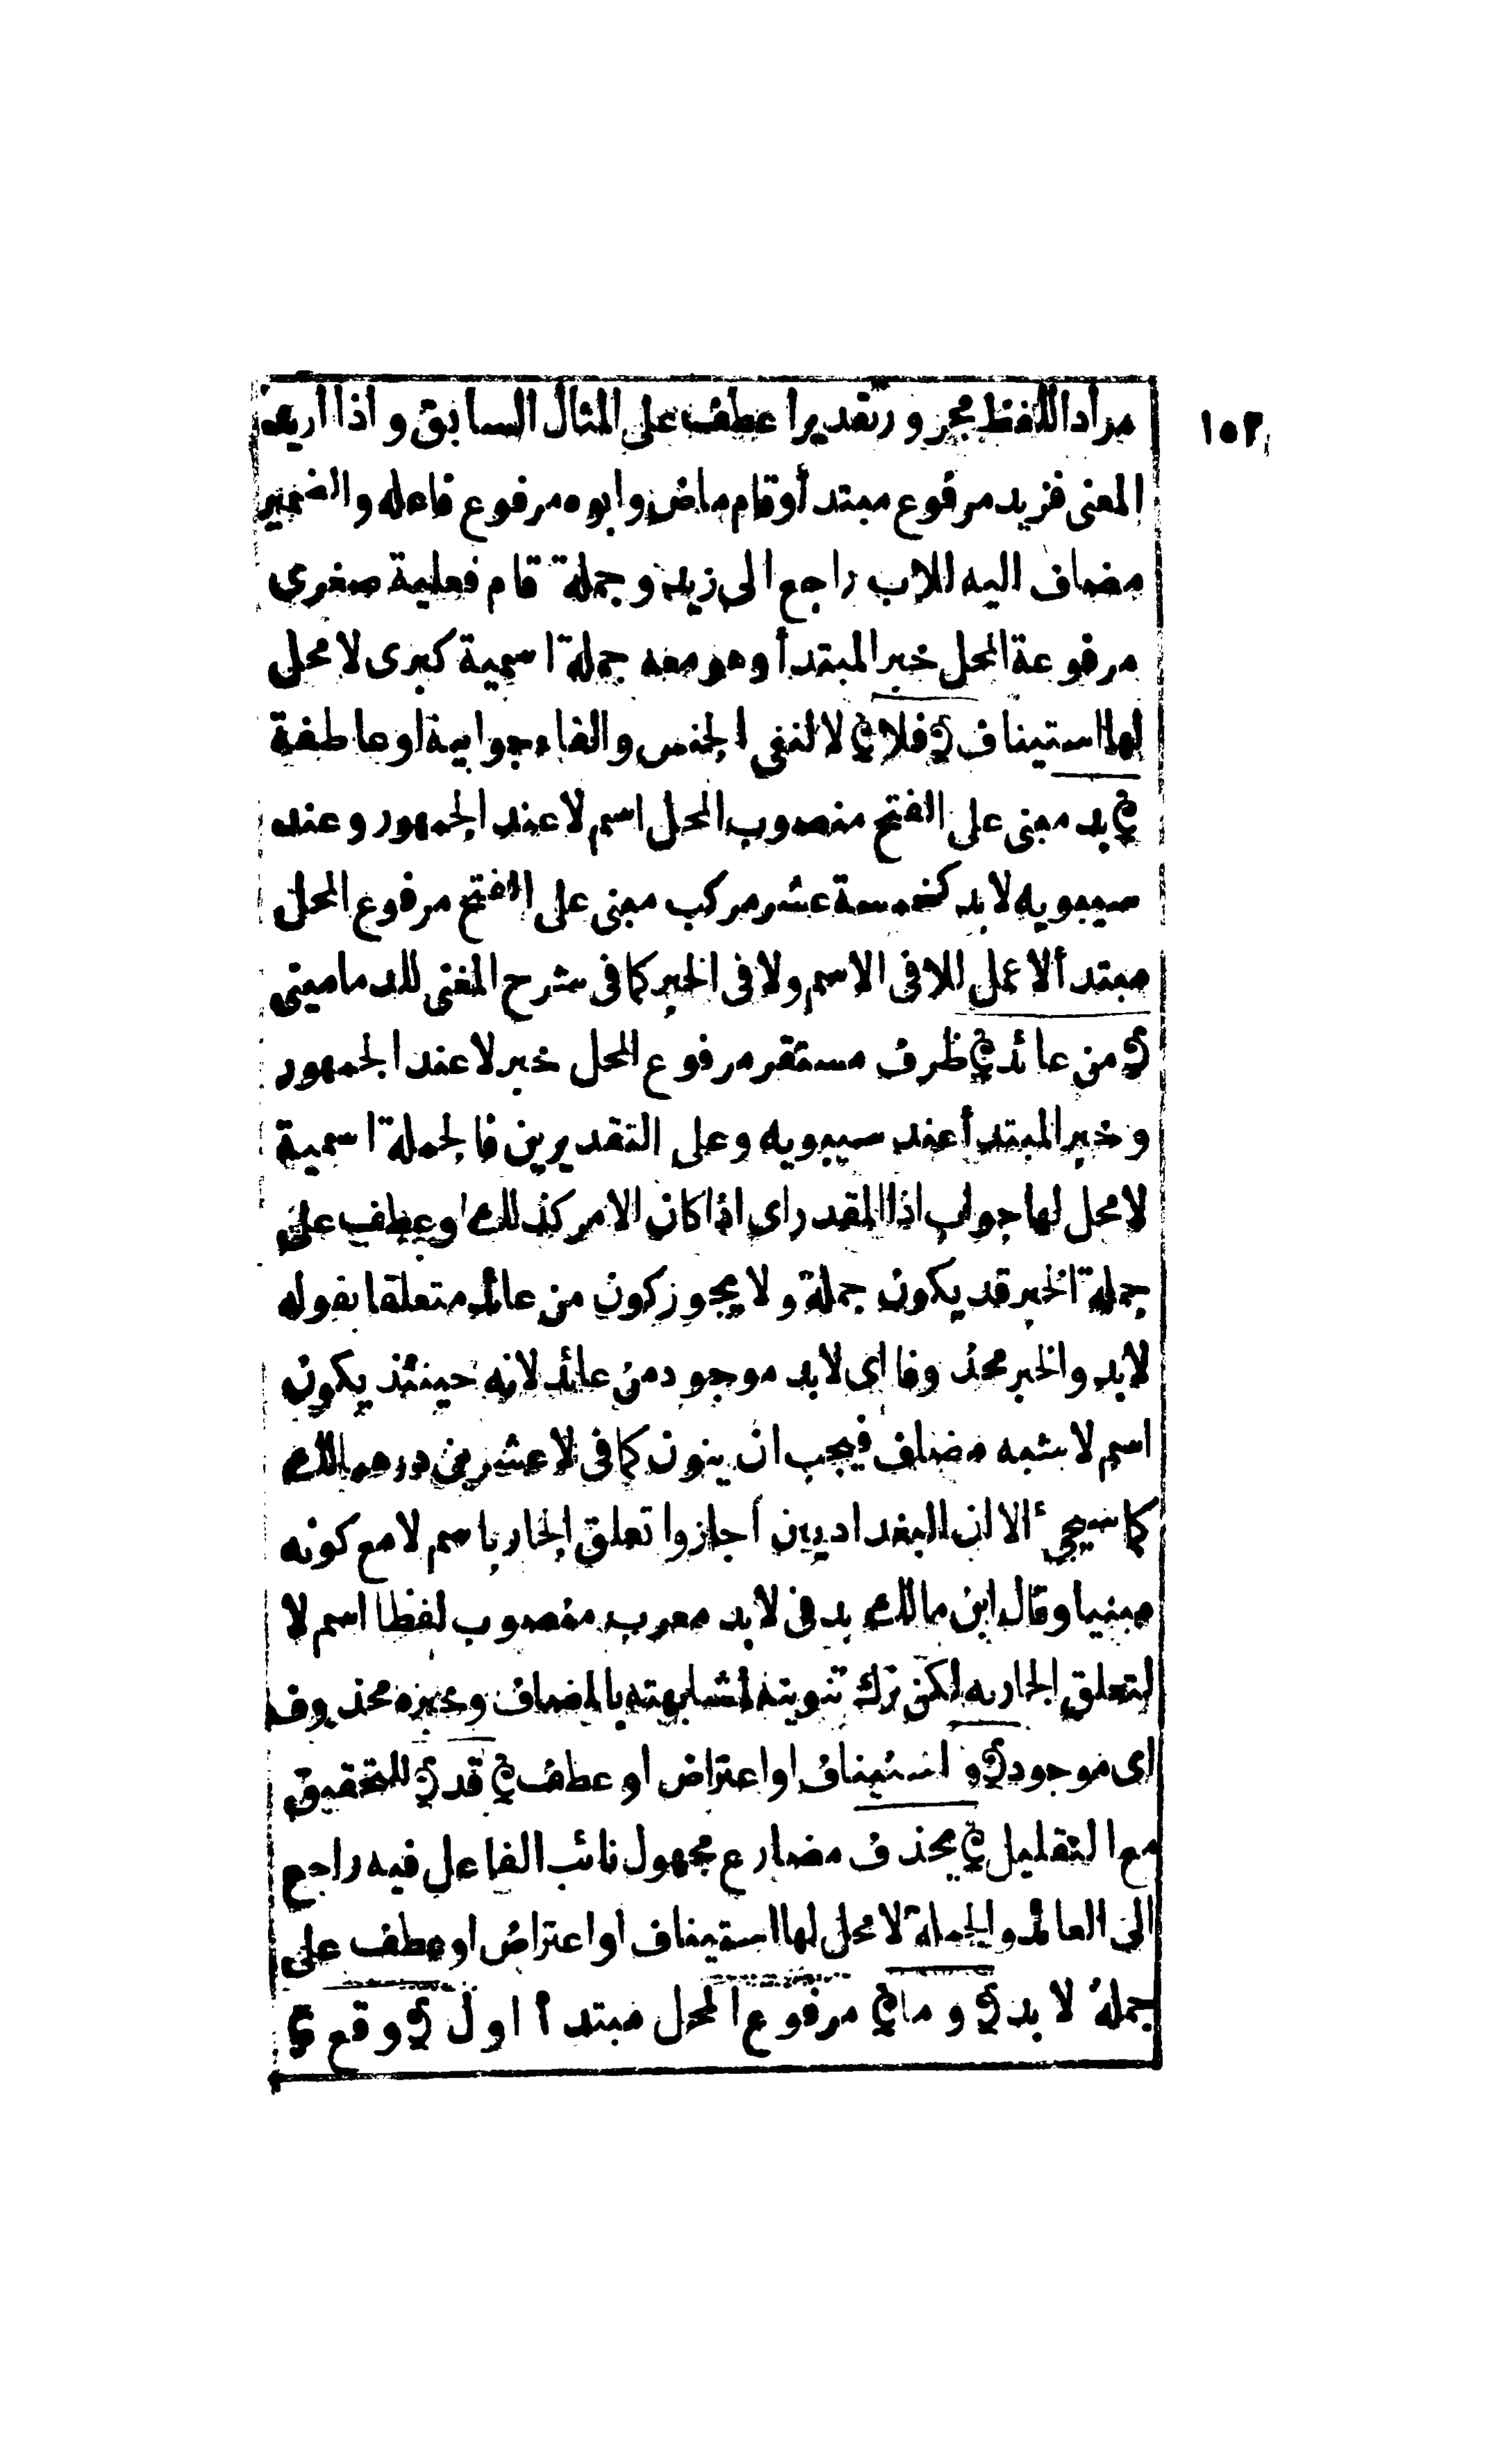 ١٥٢
مراد اللفظ مجرور تقديرا عطف على المثال السابق واذا اريد
المعنى فزيد مرفوع مبتدأ وقام ماض وابوه مرفوع فاعله والضمير
مضاف اليه للاب راجع الى زيد وجملة قام فعلية صغرى
مرفوعة المحل خبر المبتدأ وهو معه جملة اسمية كبرى لا محل
لها استيناف ﴿ فلا ﴾ لا لنفى الجنس والفاء جوابية او عاطفة
﴿ بد مبنى على الفتح منصوب المحل اسم لا عند الجمهور وعند
سيبويه لا بد كخمسة عشر مركب مبنى على الفتح مرفوع المحل
مبتدأ لا عمل للا فى الاسم ولا فى الخبر كما فى شرح المغنى للدمامينى
﴿ من عائد ﴾ ظرف مستقر مرفوع المحل خبر لا عند الجمهور
وخبر المبتدأ عند سيبويه وعلى التقديرين فالجملة اسمية
لا محل لها جواب اذا المقدر اى اذا كان الامر كذلك او عطف على
جملة الخبر قد يكون جملة ولا يجوز كون من عائد متعلقا بقوله
لا بد والخبر محذوفا اى لا بد موجود من عائد لانه حينئذ يكون
اسم لا شبه مضاف فيجب ان ينون كما فى لا عشرين درهما لك
كما سيجئ الا ان البغداديين اجازوا تعلق الجار باسم لا مع كونه
مبنيا وقال ابن مالك بد فى لا بد معرب منصوب لفظا اسم لا
لتعلق الجار به لكن ترك تنوينه لمشابهته بالمضاف وخبره محذوف
اى موجود ﴿ و استيناف او اعتراض او عطف ﴾ قد ﴿ للتحقيق
مع التقليل ﴾ يحذف مضارع مجهول نائب الفاعل فيه راجع
الى العائد والجملة لا محل لها استيناف او اعتراض او عطف على
جملة لا بد ﴿ و ما ﴾ مرفوع المحل مبتدأ اول ﴿ وقع ﴾